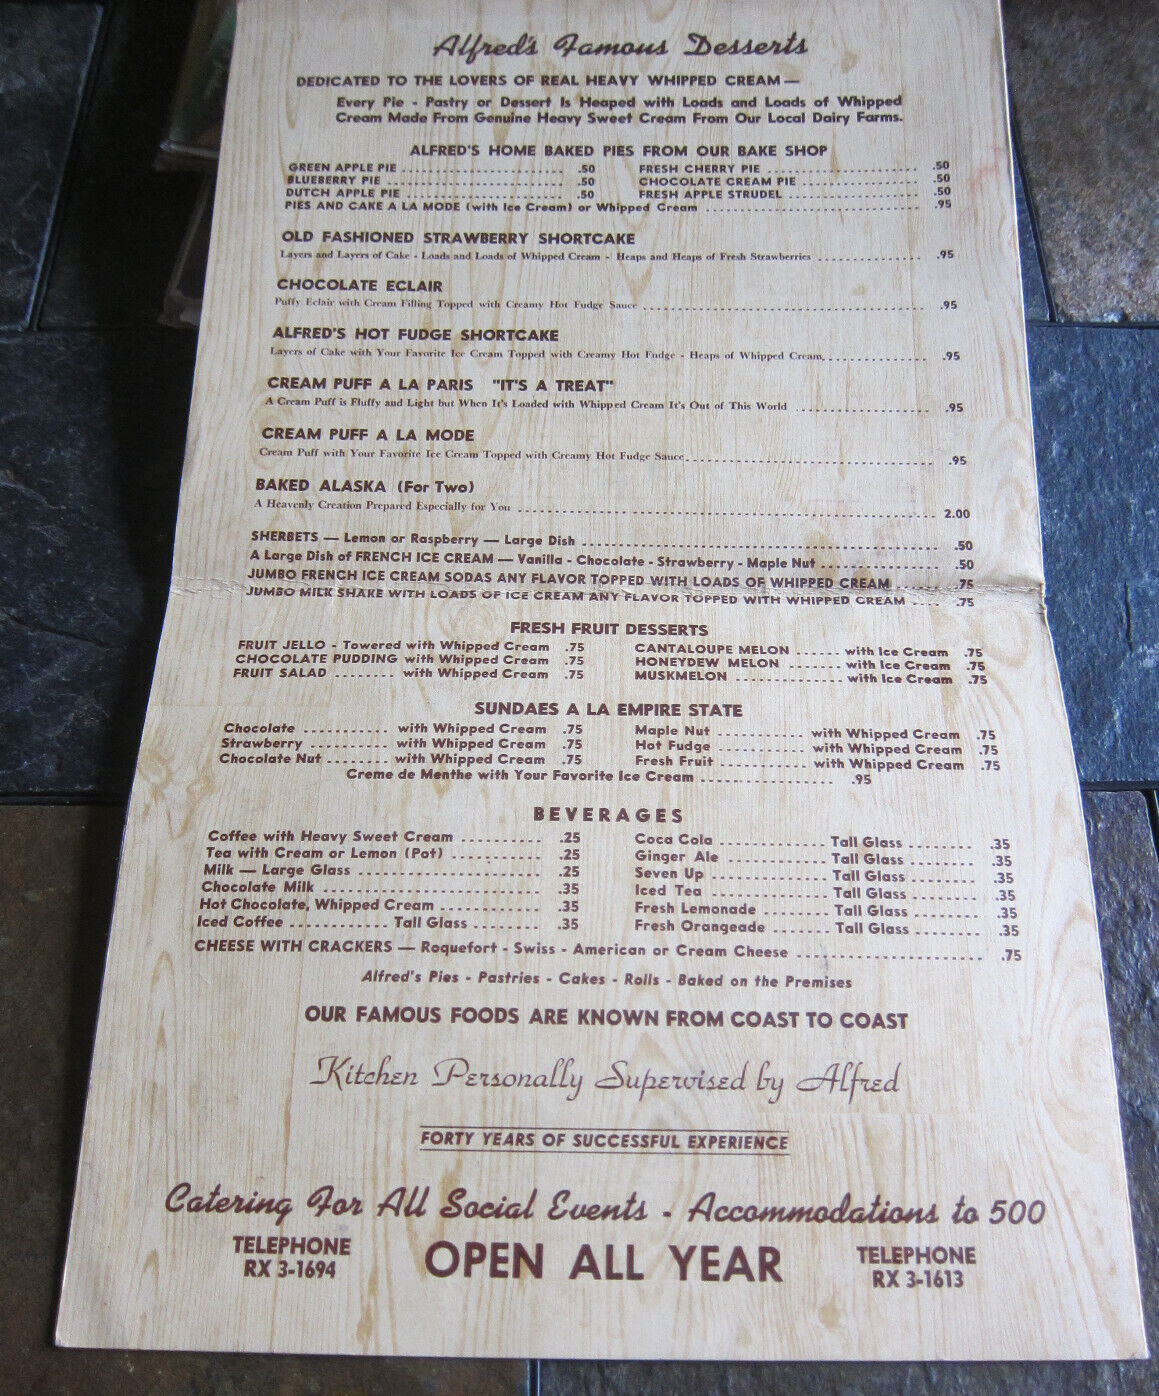 Alfred's Famous Desserts
DEDICATED TO THE LOVERS OF REAL HEAVY WHIPPED CREAM —
Every Pie - Pastry or Dessert Is Heaped with Loads and Loads of Whipped
Cream Made From Genuine Heavy Sweet Cream From Our Local Dairy Farms.
ALFRED'S HOME BAKED PIES FROM OUR BAKE SHOP
GREEN APPLE PIE .................... .50 FRESH CHERRY PIE .................... .50
BLUEBERRY PIE .................... .50 CHOCOLATE CREAM PIE .................... .50
DUTCH APPLE PIE .................... .50 FRESH APPLE STRUDEL .................... .50
PIES AND CAKE A LA MODE (with Ice Cream) or Whipped Cream .................... .95
OLD FASHIONED STRAWBERRY SHORTCAKE
Layers and Layers of Cake - Loads and Loads of Whipped Cream - Heaps and Heaps of Fresh Strawberries .............. .95
CHOCOLATE ECLAIR
Puffy Eclair with Cream Filling Topped with Creamy Hot Fudge Sauce .................... .95
ALFRED'S HOT FUDGE SHORTCAKE
Layers of Cake with Your Favorite Ice Cream Topped with Creamy Hot Fudge - Heaps of Whipped Cream .............. .95
CREAM PUFF A LA PARIS "IT'S A TREAT"
A Cream Puff is Fluffy and Light but When It's Loaded with Whipped Cream It's Out of This World .............. .95
CREAM PUFF A LA MODE
Cream Puff with Your Favorite Ice Cream Topped with Creamy Hot Fudge Sauce .................... .95
BAKED ALASKA (For Two)
A Heavenly Creation Prepared Especially for You .................... 2.00
SHERBETS — Lemon or Raspberry — Large Dish .................... .50
A Large Dish of FRENCH ICE CREAM — Vanilla - Chocolate - Strawberry - Maple Nut .............. .50
JUMBO FRENCH ICE CREAM SODAS ANY FLAVOR TOPPED WITH LOADS OF WHIPPED CREAM ........ .75
JUMBO MILK SHAKE WITH LOADS OF ICE CREAM ANY FLAVOR TOPPED WITH WHIPPED CREAM .... .75
FRESH FRUIT DESSERTS
FRUIT JELLO - Towered with Whipped Cream .75 CANTALOUPE MELON ...... with Ice Cream .75
CHOCOLATE PUDDING with Whipped Cream .75 HONEYDEW MELON ....... with Ice Cream .75
FRUIT SALAD ........ with Whipped Cream .75 MUSKMELON .............. with Ice Cream .75
SUNDAES A LA EMPIRE STATE
Chocolate ........... with Whipped Cream .75 Maple Nut ........... with Whipped Cream .75
Strawberry .......... with Whipped Cream .75 Hot Fudge ............ with Whipped Cream .75
Chocolate Nut ....... with Whipped Cream .75 Fresh Fruit ............ with Whipped Cream .75
Creme de Menthe with Your Favorite Ice Cream .................. .95
BEVERAGES
Coffee with Heavy Sweet Cream .......... .25 Coca Cola .............. Tall Glass ........ .35
Tea with Cream or Lemon (Pot) ........... .25 Ginger Ale ............. Tall Glass ........ .35
Milk — Large Glass ...................... .25 Seven Up .............. Tall Glass ........ .35
Chocolate Milk .......................... .35 Iced Tea ............... Tall Glass ........ .35
Hot Chocolate, Whipped Cream ............. .35 Fresh Lemonade ........ Tall Glass ........ .35
Iced Coffee ............ Tall Glass ........ .35 Fresh Orangeade ....... Tall Glass ........ .35
CHEESE WITH CRACKERS — Roquefort - Swiss - American or Cream Cheese .................... .75
Alfred's Pies - Pastries - Cakes - Rolls - Baked on the Premises
OUR FAMOUS FOODS ARE KNOWN FROM COAST TO COAST
Kitchen Personally Supervised by Alfred
FORTY YEARS OF SUCCESSFUL EXPERIENCE
Catering For All Social Events - Accommodations to 500
TELEPHONE
RX 3-1694
OPEN ALL YEAR
TELEPHONE
RX 3-1613